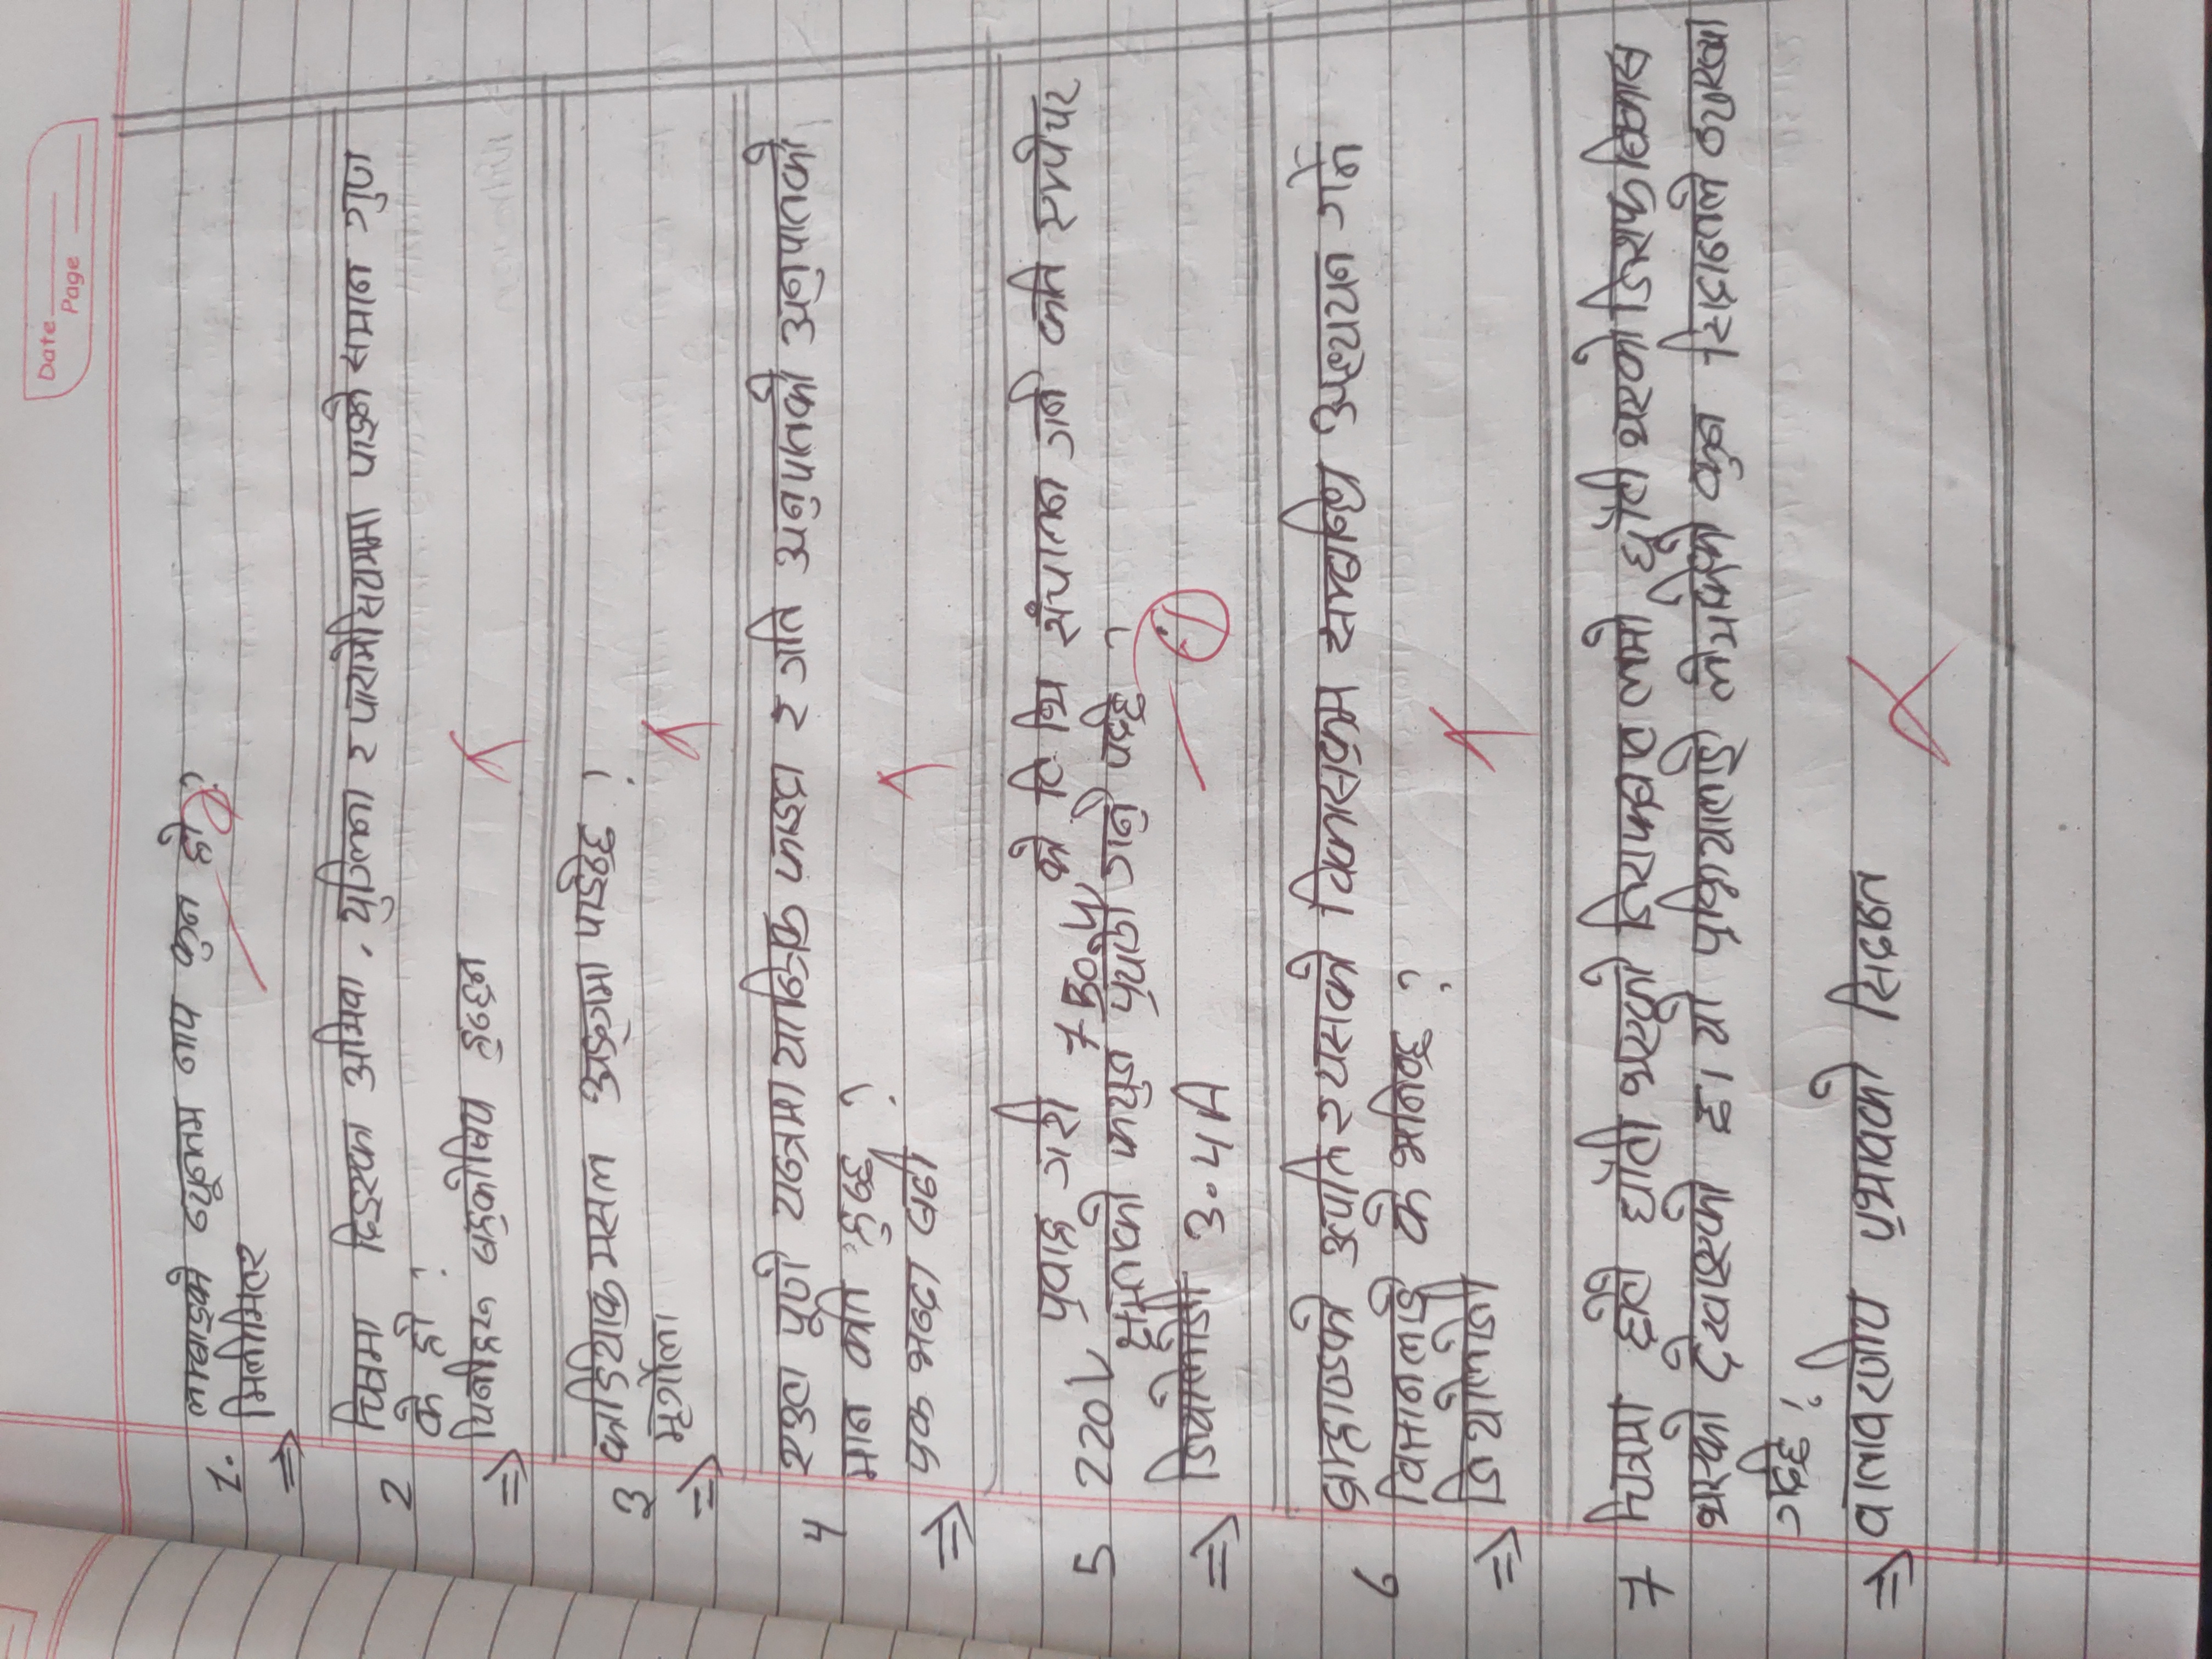 Date
Page
1. लम्बाइको न्यूनतम नाप कुन हो ?
⇒ मिलीमिटर
2 चित्रमा दिइएका अमिवा, युग्लिना र पारामेसियममा पाइने समान गुण
के हो ?
⇒ यिनीहरू बहुकोषिय हुन्छन
3 कार्डियाक मसल अङ्गमा पाईन्छ ?
⇒ मृर्गौला
4 एउटा पूर्ण यन्त्रमा यान्त्रिक फाइदा र गति अनुपातको अनुपातको
मान कति हुन्छ ?
⇒ एक भन्दा बढी
5 220V प्रवाह गरी 750W को टि भि संचालन गर्न कति एम्पेयर
क्षमताको फ्युज प्रयोग गर्नु पर्दछ ?
⇒ जियोलोजी 3.4A
6 ब्राम्हाण्डको उत्पति र यसको विकासक्रम सम्बन्धि अध्ययन गर्ने
विज्ञानलाई के भनिन्छ ?
⇒ जियोलोजी
7 चित्रमा छोटो घाँटी भएको जिराफबाट लामो घाँटी भएको जिराफ विकास
भएको देखाइएको छ। यो प्रक्रियालाई लेमार्कको कुन सिद्धान्तले व्याख्या
गर्दछ ?
⇒ वातावरणीय प्रभावको सिद्धान्त